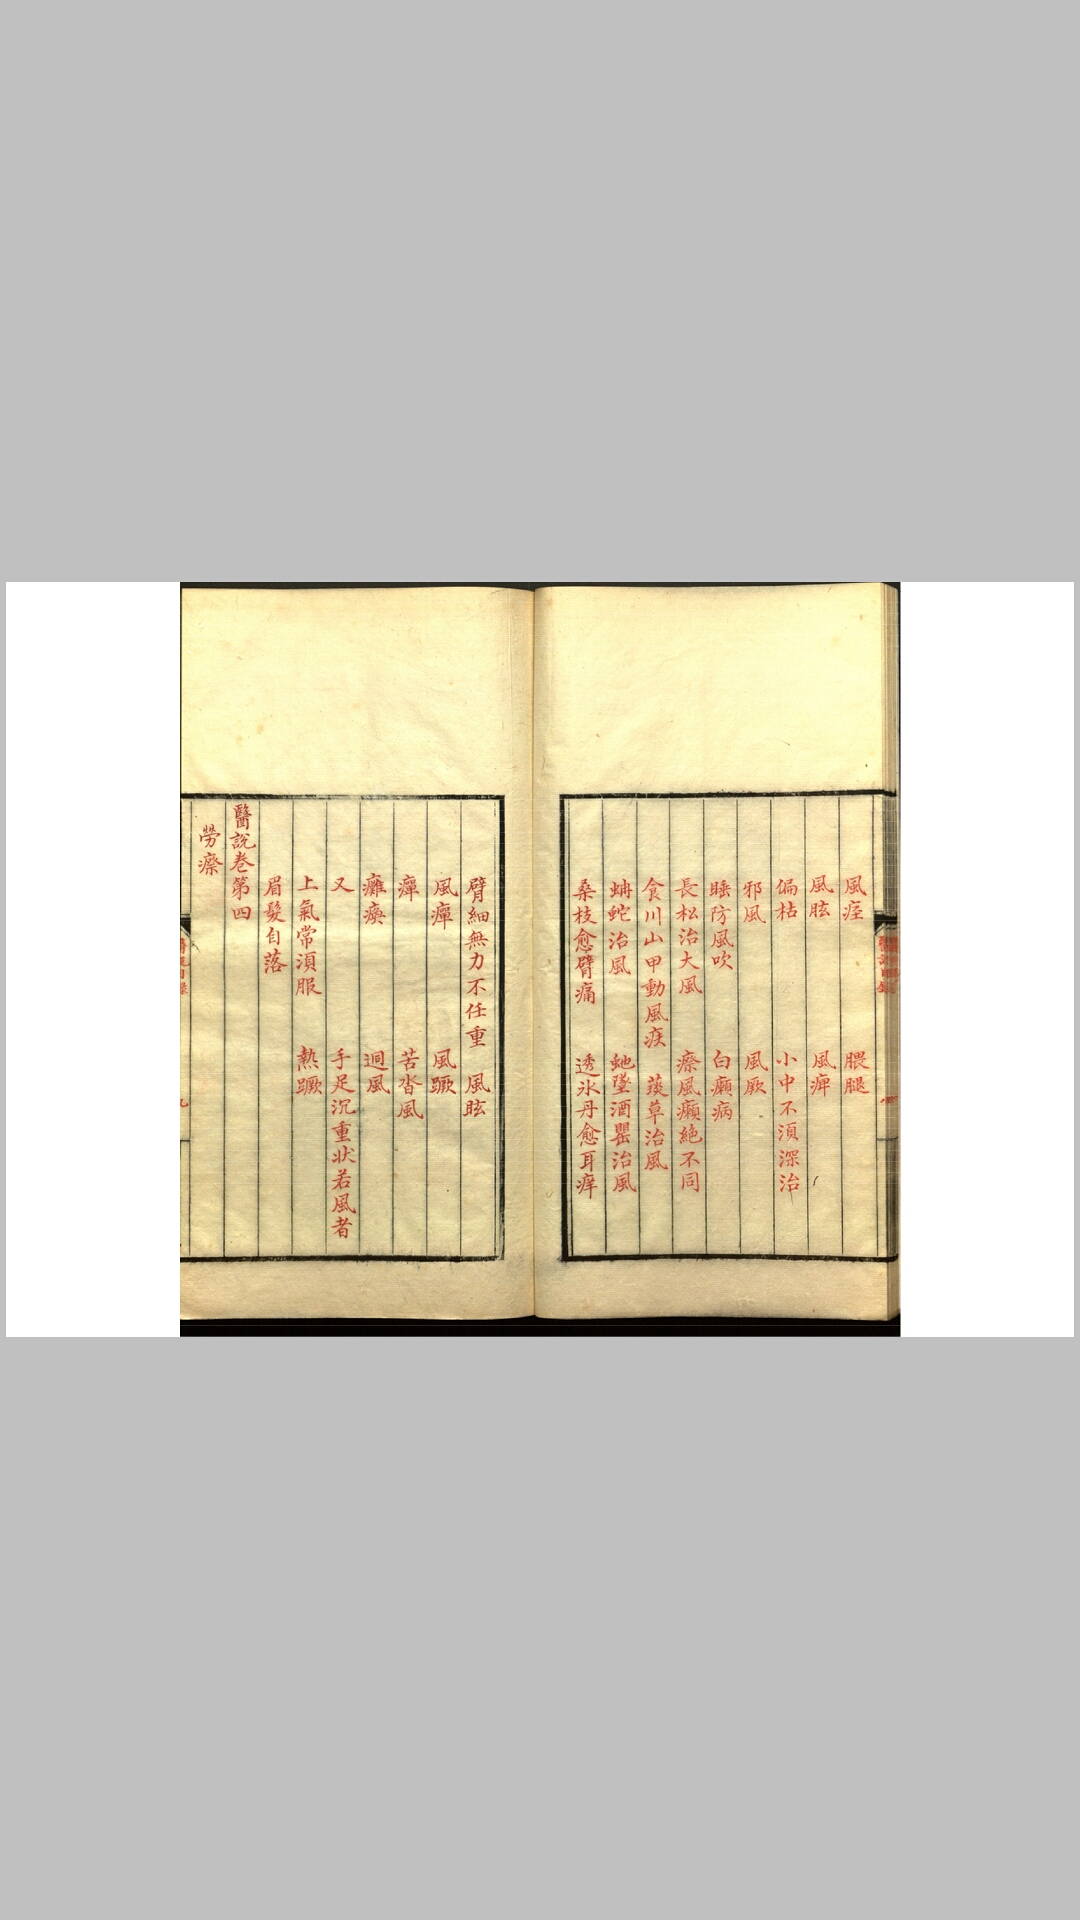 風痓　腲腿
風眩　風痺
偏枯　小中不湏深治
邪風　風厥
睡防風吹　白癩病
長松治大風　療風癩絶不同
食川山甲動風疾　蔆草治風
蚺蛇治風　虵墜酒罌治風
桑枝愈臂痛　透氷丹愈耳痒
臂細無力不任重　風眩
風癉　風蹶
癉　苦沓風
癱瘓　迵風
又　手足沉重状若風者
上氣常湏服　熱蹶
眉髮自落
醫説卷第四
勞瘵
九